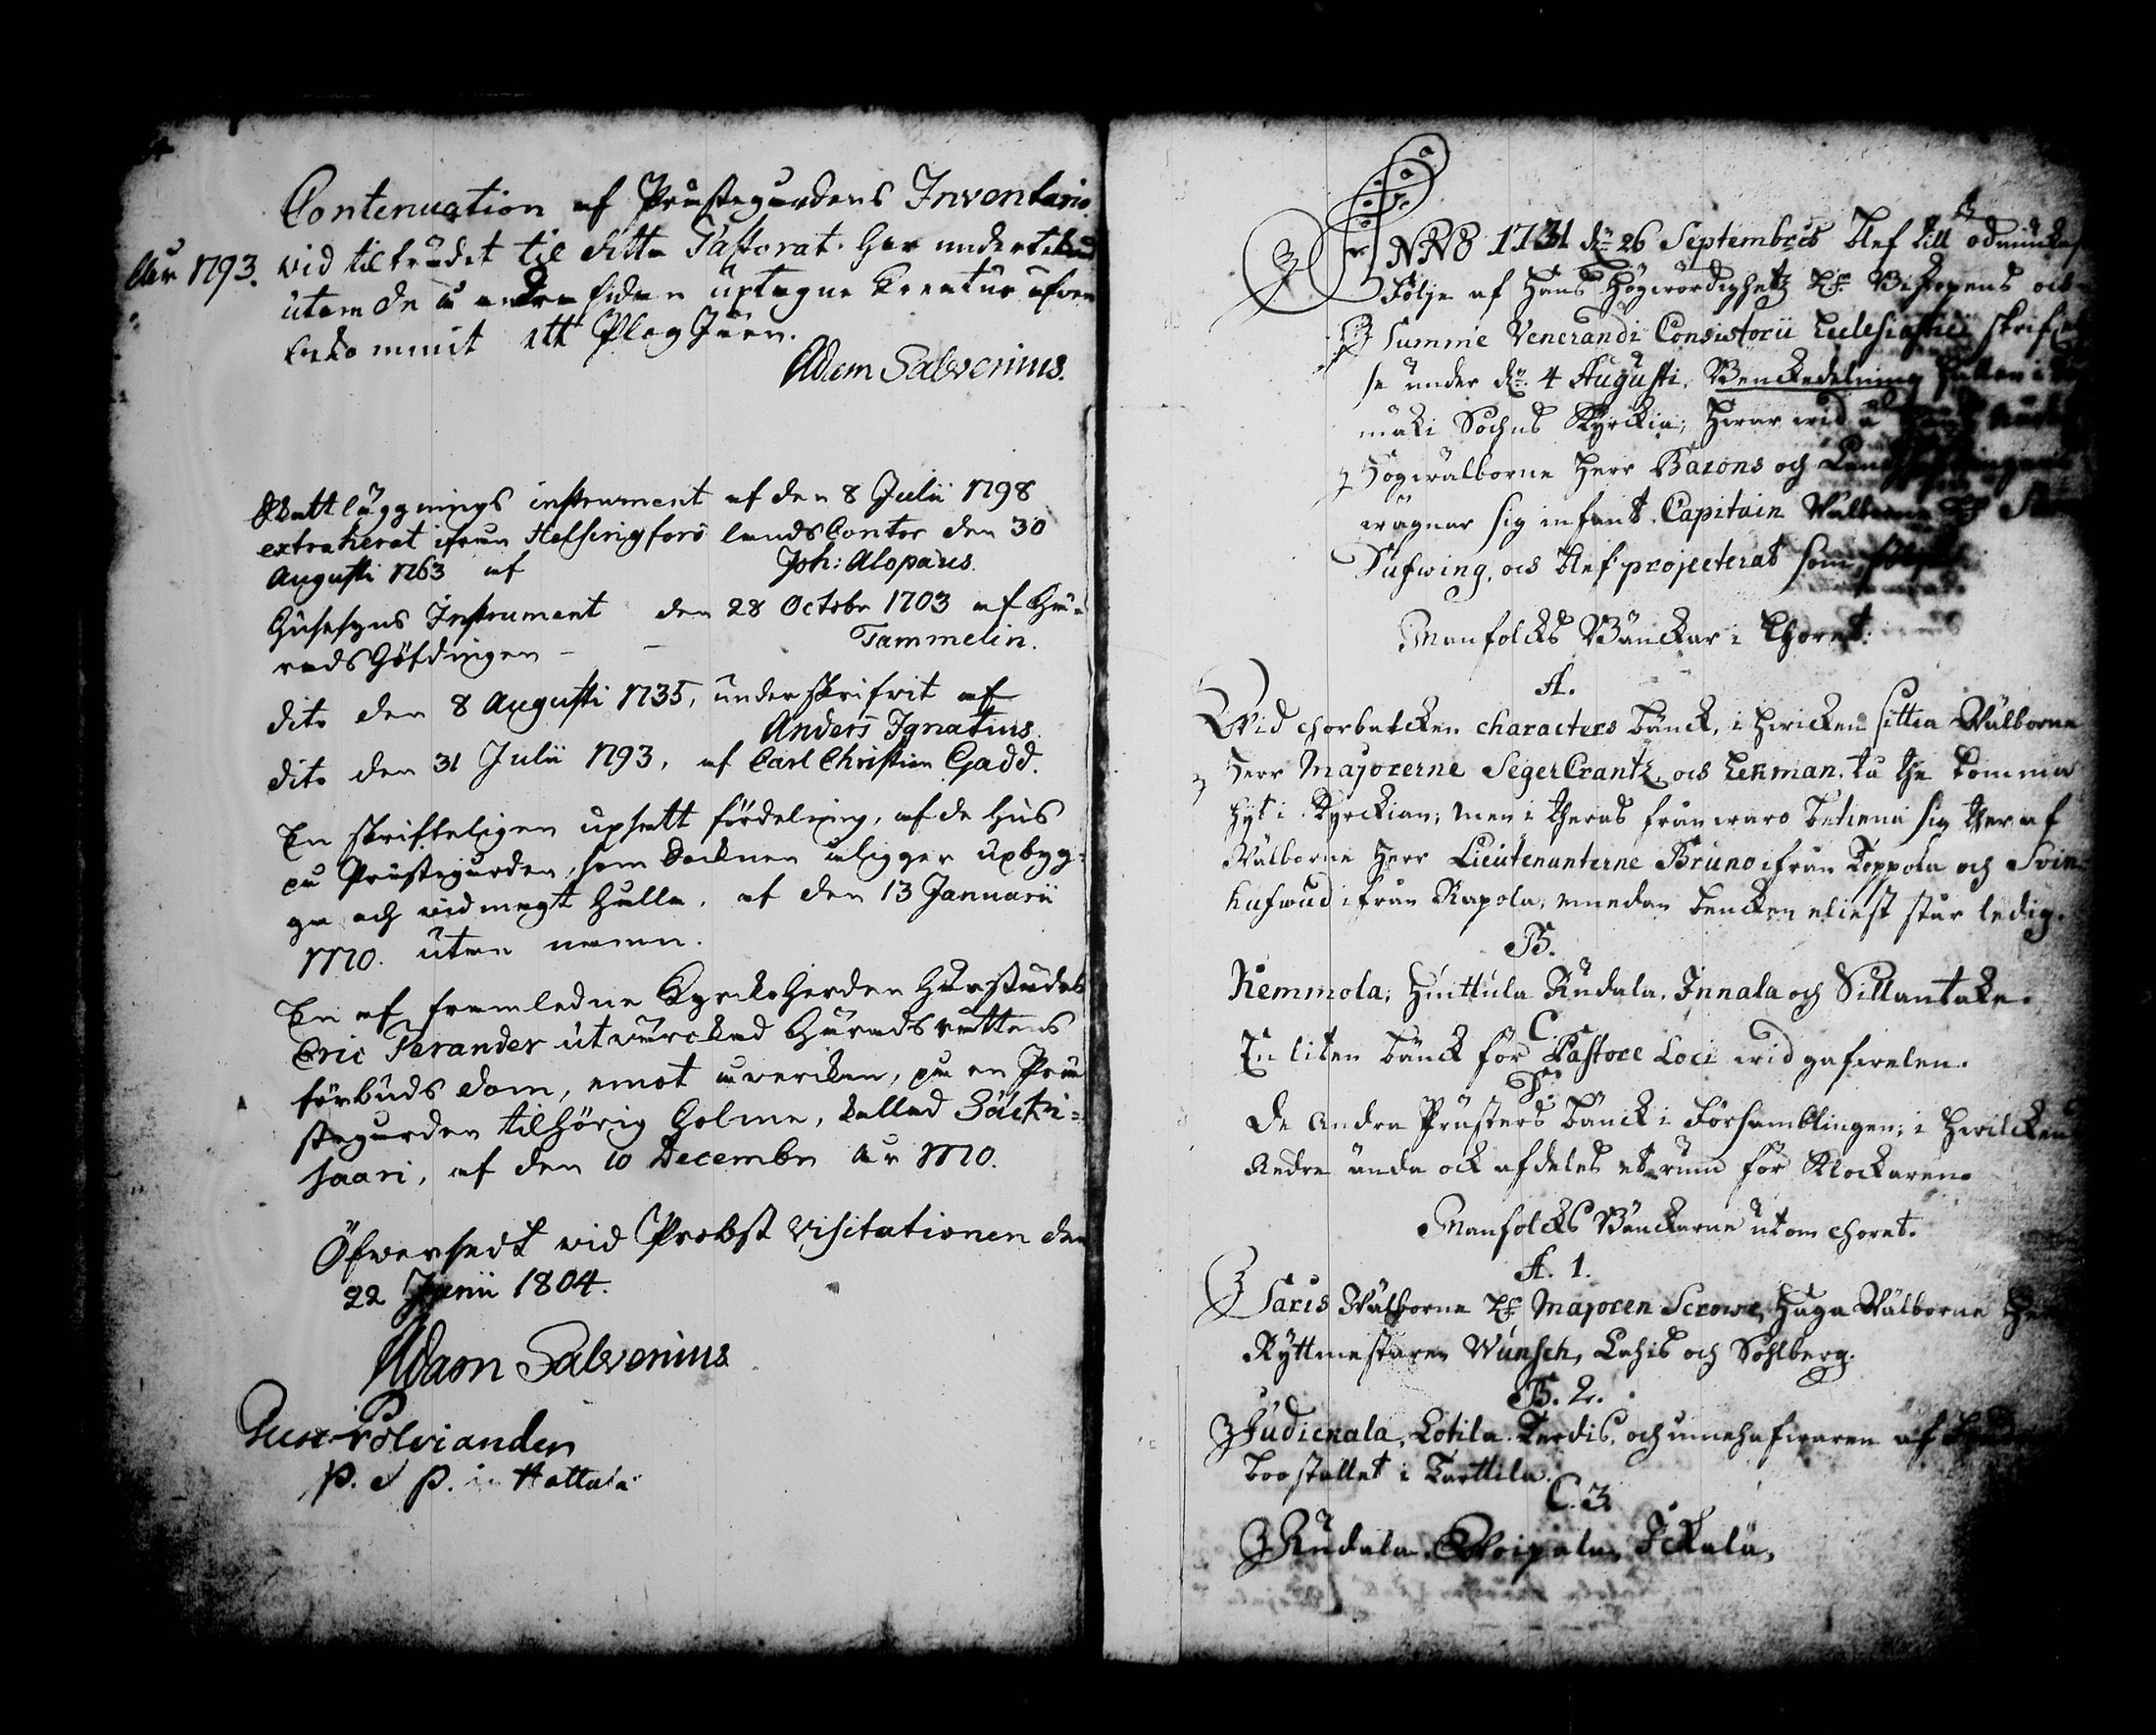 Contenuation af Prästegårdens Inventario.
Åår 1793. vid tilträdet til detta Pastorat. har undertecknad
utom de å andra sidan uptagne Creatur äfven
bekommit ett Plog Järn.
Adam Salvenius.
Skattläggnings instrument af den 8 Julii 1798
extraherat ifrån Helsingfors landsContor den 30
Augusti 1763 af Joh: Alopæus.
Husesyns Instrument den 28 Octobr 1703 af Hä-
radsHöfdingen - - Tammelin.
dito den 8 Augusti 1735, underskrifvit af
Anders Ignatius.
dito den 31 Julii 1793, af Carl Christian Gadd.
En skrifteligen upsatt fördelning, af de hus
på Prästegården, som Socknen åligger upbyg-
ga och vid magt hålla, af den 13 Januarii
1770. utan namn.
En af framledne Kyrkoherden
Eric Perander utvärckad Häradsrättens
förbuds dom, emot åvercken, på en Prä
stegården tilhörig holme, kallad
saari, af den 10 Decembr År 1770.
Öfversedt vid Probst Visitationen den
22 Junii 1804.
Adam Salvenius
Gust Polviander
P. & P. in Hattula
NNO 1731 dn 26 Septembris blef till ödmiuk
Följe af Hans Högwördighetz Hr Biskopens och
Summe Venerandi Consistorii Ecclesiastici skrif
se under dn 4 Augusti, Benckedelning hållen i
mäki Sochns Kyrckia; Hwar wid å
Högwälborne Herr Barons och
wägnar sig infant Capitain Wälborne Hr
Sufwing, och blef projecterat som
Manfolcks Bänckar i Choret.
A.
Wid chorbalcken characters bänck, i hwicken sittia Wälborne
Herr Majorerne SegerCrantz och Lekman. tå the komma
hyt i Kyrckian; men i theras frånwaro betiena sig ther af
Wälborne Herr Lieutenanterne Bruno ifrån Toppola och Svin-
hufwud ifrån Rapola, emedan bencken eliest står ledig.
B.
Kemmola, Huittula Rudala, Innala och Sillantaka.
C.
En liten bänck för Pastore Loci wid gafwelen.
D.
De Andra Prästers bänck i Församblingen; i hwilcken
Andra ända ock afdeles et rum för Klockaren.
Manfolcks Bänckarne utom choret.
A. 1.
Saris Wälborne Hr Majoren Scrowe, Haga Wälborne Herr
Ryttmestaren Wunsch, Lahis och Sohlberg.
B. 2.
Judickala, Lotila Kardis, och innehafwaren af
boostället i Tarttila.
C. 3
Rudala, Woipala, Ickala,